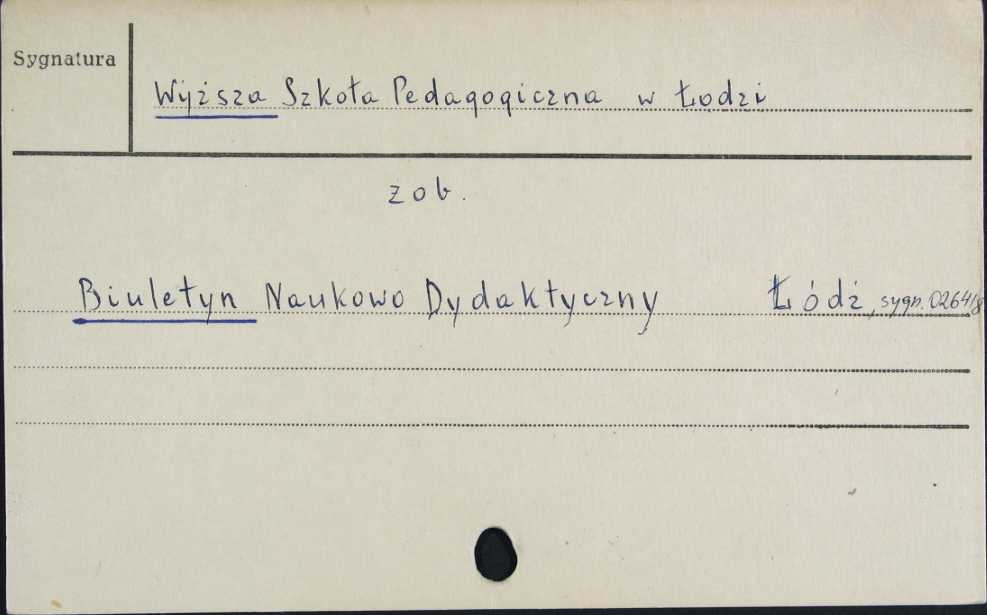 Sygnatura
Wyższa Szkoła Pedagogiczna w Łodzi
zob.
Biuletyn Naukowo Dydaktyczny Łódź, sygn. 0264/g